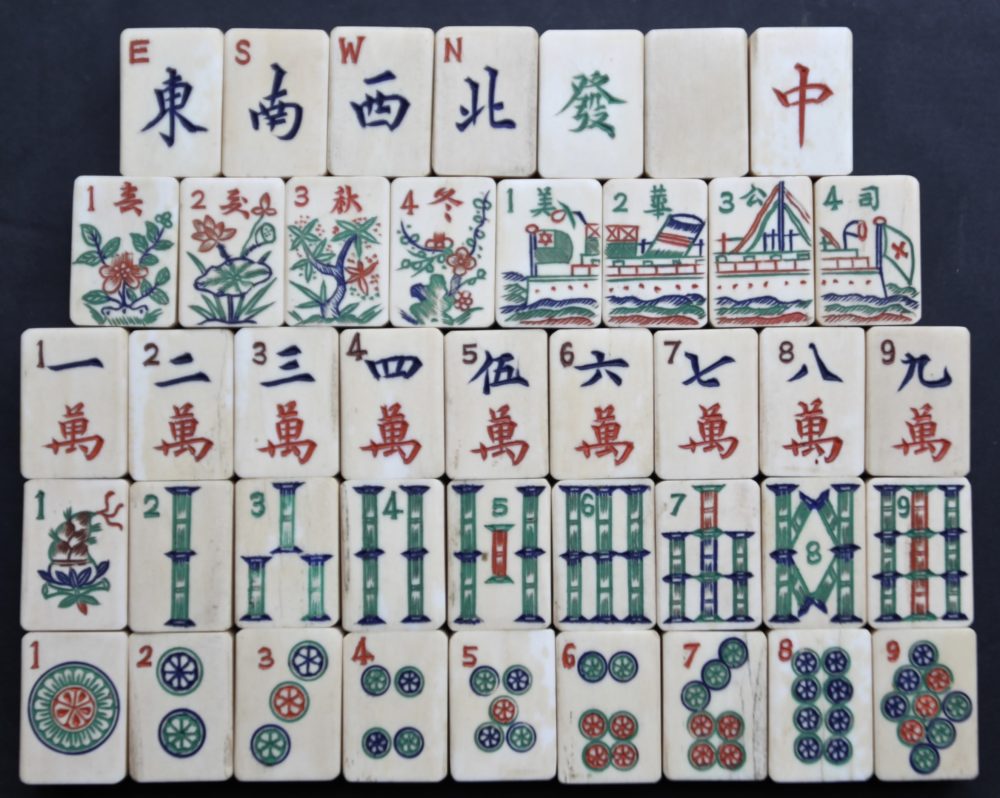 E S W N
東 南 西 北 發 中
1 春 2 夏 3 秋 4 冬 1 美 2 華 3 公 4 司
1 一 2 二 3 三 4 四 5 伍 6 六 7 七 8 八 9 九
萬 萬 萬 萬 萬 萬 萬 萬 萬
1 2 3 4 5 6 7 8 9
1 2 3 4 5 6 7 8 9